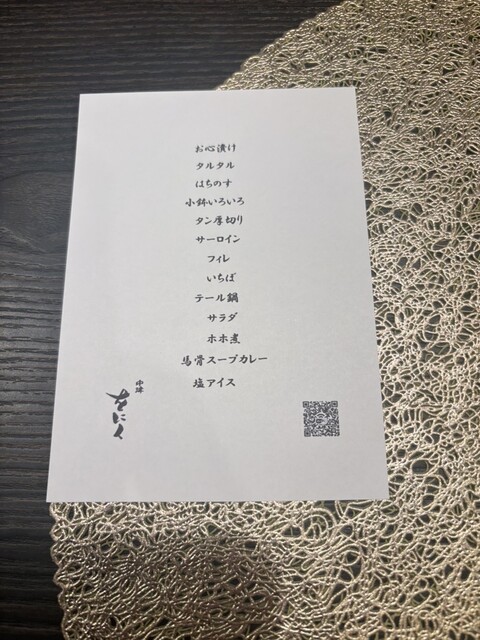 お心漬け
タルタル
はちのす
小鉢いろいろ
タン厚切り
サーロイン
フィレ
いちぼ
テール鍋
サラダ
ホホ煮
馬骨スープカレー
塩アイス
をにく